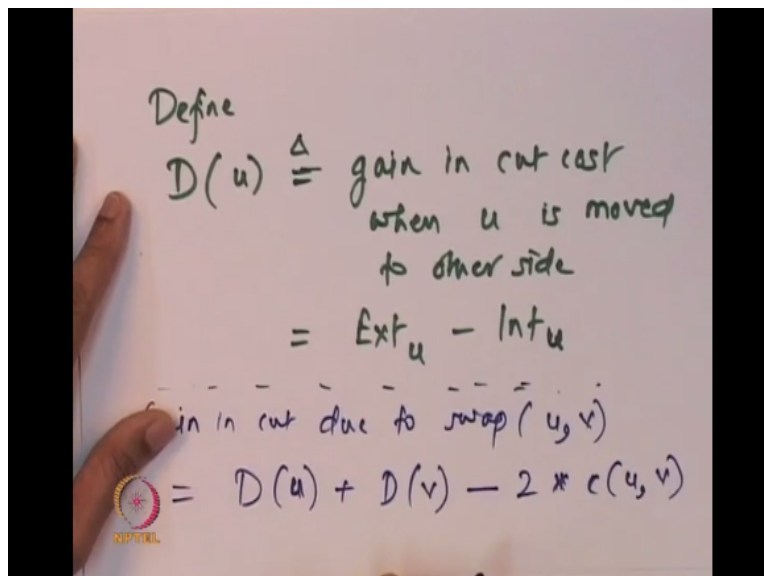 Define
D(u) ≜ gain in cut cost
when u is moved
to other side
= Ext_u - Int_u
in in cut due to swap(u,v)
= D(u) + D(v) - 2 * c(u,v)
NPTEL